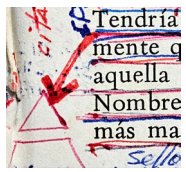 cita
Tendría
mente q
aquella
Nombre
más ma
sello